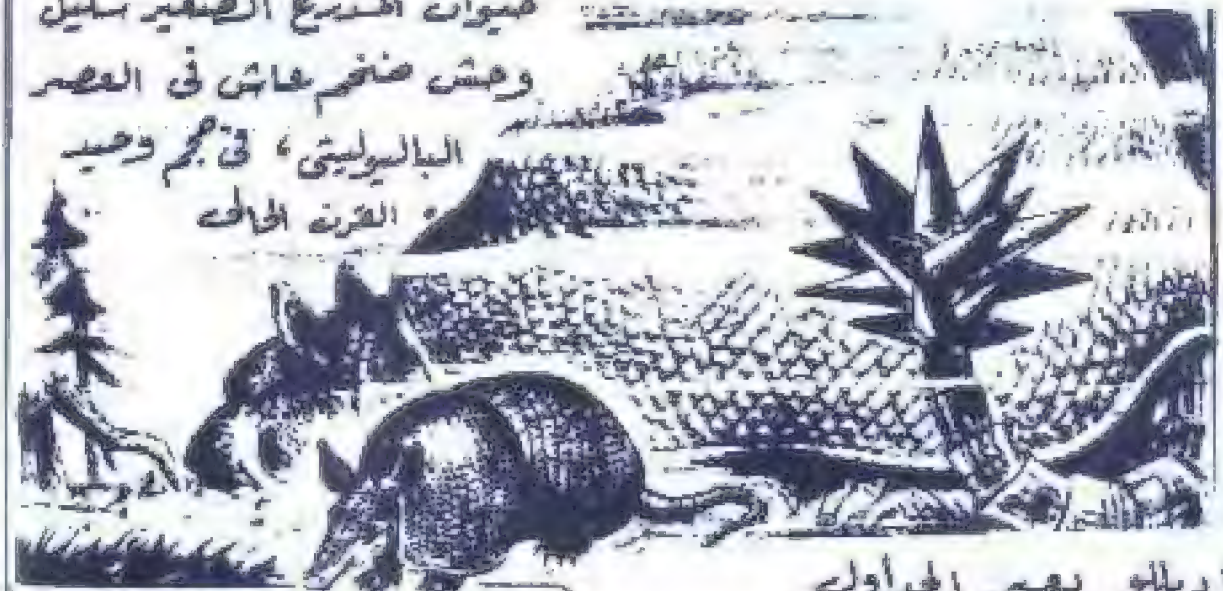 حيوان المدرع الصغير سليل
وحش ضخم عاش في العصر
الباليوليتي، في حجم وحيد
القرن الحالى